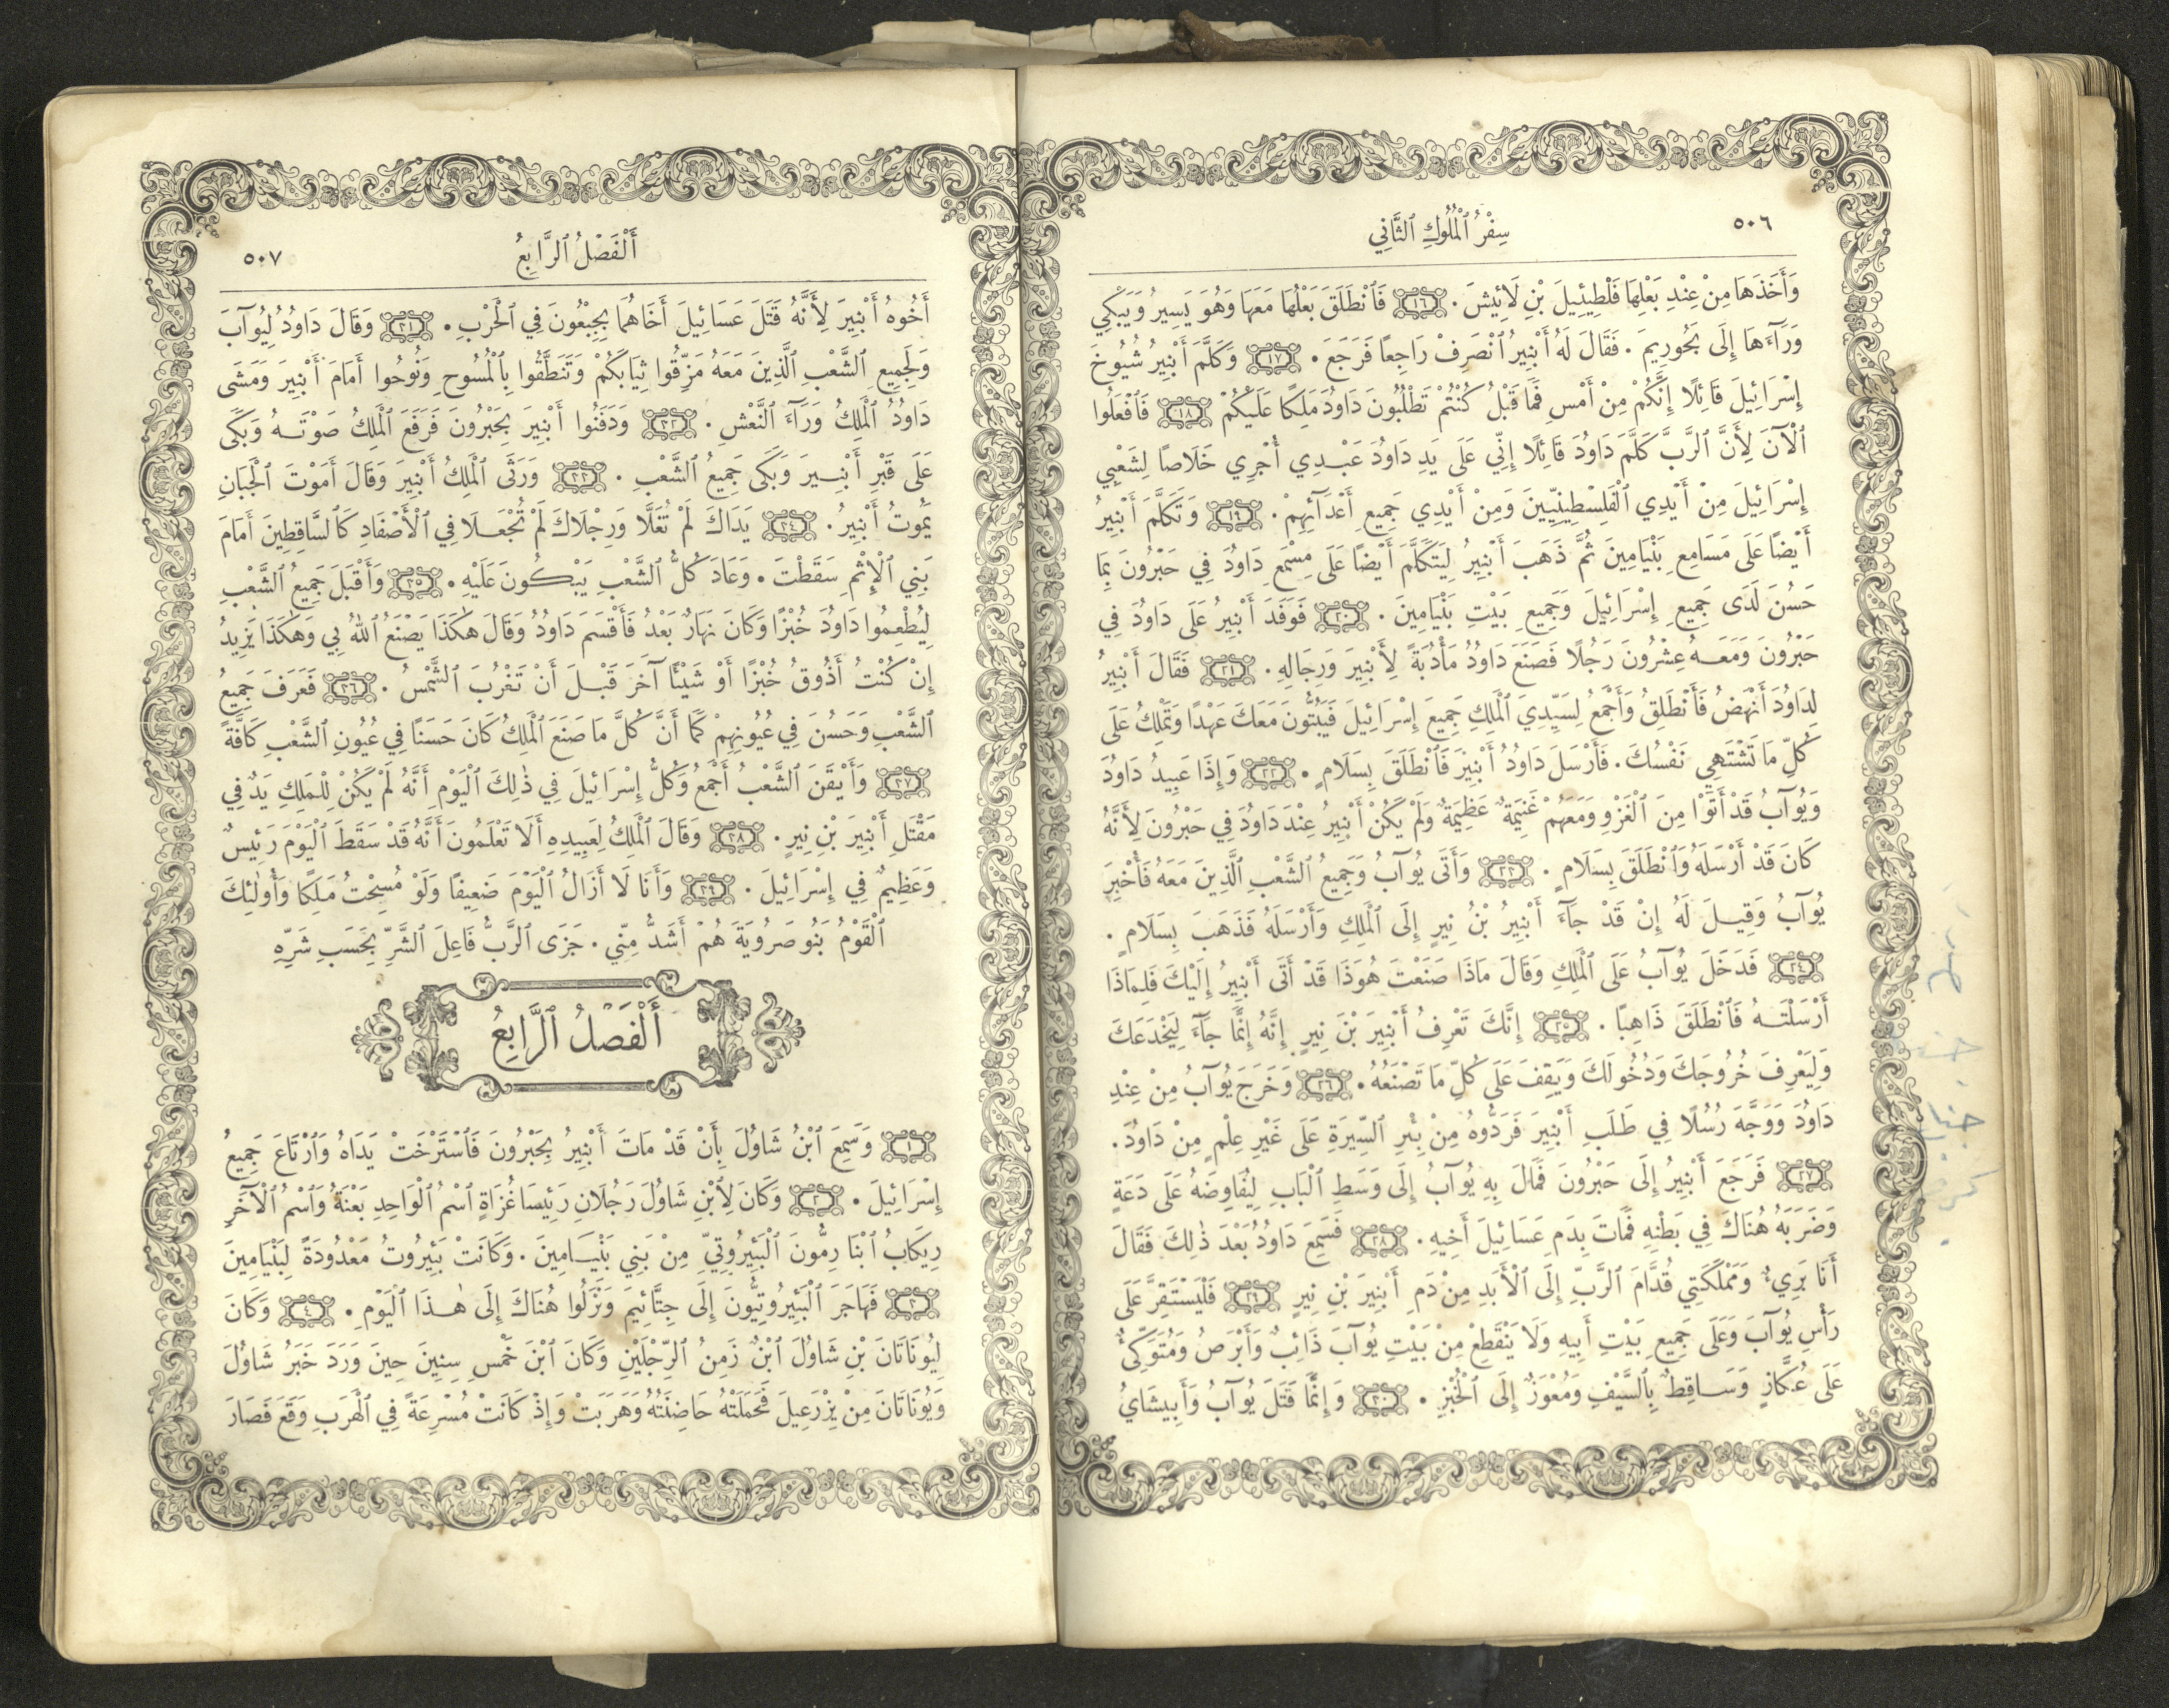 ٥٠٦
سِفْرُ ٱلْمُلُوكِ ٱلثَّانِي
وَأَخَذَهَا مِنْ عِنْدِ بَعْلِهَا فَلْطِيئِيلَ بْنِ لَائِيشَ. ١٦ فَٱنْطَلَقَ بَعْلُهَا مَعَهَا وَهُوَ يَسِيرُ وَيَبْكِي
وَرَآءَهَا إِلَى بَحُورِيمَ. فَقَالَ لَهُ أَبْنِيرُ ٱنْصَرِفْ رَاجِعًا فَرَجَعَ. ١٧ وَكَلَّمَ أَبْنِيرُ شُيُوخَ
إِسْرَائِيلَ قَائِلًا إِنَّكُمْ مِنْ أَمْسِ فَمَا قَبْلُ كُنْتُمْ تَطْلُبُونَ دَاوُدَ مَلِكًا عَلَيْكُمْ ١٨ فَٱفْعَلُوا
ٱلْآنَ لِأَنَّ ٱلرَّبَّ كَلَّمَ دَاوُدَ قَائِلًا إِنِّي عَلَى يَدِ دَاوُدَ عَبْدِي أُجْرِي خَلَاصًا لِشَعْبِي
إِسْرَائِيلَ مِنْ أَيْدِي ٱلْفَلِسْطِينِيِّينَ وَمِنْ أَيْدِي جَمِيعِ أَعْدَآئِهِمْ. ١٩ وَتَكَلَّمَ أَبْنِيرُ
أَيْضًا عَلَى مَسَامِعِ بَنْيَامِينَ ثُمَّ ذَهَبَ أَبْنِيرُ لِيَتَكَلَّمَ أَيْضًا عَلَى مِسْمَعِ دَاوُدَ فِي حَبْرُونَ بِمَا
حَسُنَ لَدَى جَمِيعِ إِسْرَائِيلَ وَجَمِيعِ بَيْتِ بَنْيَامِينَ. ٢٠ فَوَفَدَ أَبْنِيرُ عَلَى دَاوُدَ فِي
حَبْرُونَ وَمَعَهُ عِشْرُونَ رَجُلًا فَصَنَعَ دَاوُدُ مَأْدُبَةً لِأَبْنِيرَ وَرِجَالِهِ. ٢١ فَقَالَ أَبْنِيرُ
لِدَاوُدَ أَنْهَضُ فَأَنْطَلِقُ وَأَجْمَعُ لِسَيِّدِيَ ٱلْمَلِكِ جَمِيعَ إِسْرَائِيلَ فَيَبُتُّونَ مَعَكَ عَهْدًا وَتَمْلِكُ عَلَى
كُلِّ مَا تَشْتَهِي نَفْسُكَ. فَأَرْسَلَ دَاوُدُ أَبْنِيرَ فَٱنْطَلَقَ بِسَلَامٍ. ٢٢ وَإِذَا عَبِيدُ دَاوُدَ
وَيُوآبُ قَدْ أَتَوْا مِنَ ٱلْغَزْوِ وَمَعَهُمْ غَنِيمَةٌ عَظِيمَةٌ وَلَمْ يَكُنْ أَبْنِيرُ عِنْدَ دَاوُدَ فِي حَبْرُونَ لِأَنَّهُ
كَانَ قَدْ أَرْسَلَهُ وَٱنْطَلَقَ بِسَلَامٍ. ٢٣ وَأَتَى يُوآبُ وَجَمِيعُ ٱلشَّعْبِ ٱلَّذِينَ مَعَهُ فَأُخْبِرَ
يُوآبُ وَقِيلَ لَهُ إِنْ قَدْ جَآءَ أَبْنِيرُ بْنُ نِيرٍ إِلَى ٱلْمَلِكِ وَأَرْسَلَهُ فَذَهَبَ بِسَلَامٍ.
٢٤ فَدَخَلَ يُوآبُ عَلَى ٱلْمَلِكِ وَقَالَ مَاذَا صَنَعْتَ هُوَذَا قَدْ أَتَى أَبْنِيرُ إِلَيْكَ فَلِمَاذَا
أَرْسَلْتَهُ فَٱنْطَلَقَ ذَاهِبًا. ٢٥ إِنَّكَ تَعْرِفُ أَبْنِيرَ بْنَ نِيرٍ إِنَّهُ إِنَّمَا جَآءَ لِيَخْدَعَكَ
وَلِيَعْرِفَ خُرُوجَكَ وَدُخُولَكَ وَيَقِفَ عَلَى كُلِّ مَا تَصْنَعُهُ. ٢٦ وَخَرَجَ يُوآبُ مِنْ عِنْدِ
دَاوُدَ وَوَجَّهَ رُسُلًا فِي طَلَبِ أَبْنِيرَ فَرَدُّوهُ مِنْ بِئْرِ ٱلسِّيرَةِ عَلَى غَيْرِ عِلْمٍ مِنْ دَاوُدَ.
٢٧ فَرَجَعَ أَبْنِيرُ إِلَى حَبْرُونَ فَمَالَ بِهِ يُوآبُ إِلَى وَسَطِ ٱلْبَابِ لِيُفَاوِضَهُ عَلَى دَعَةٍ
وَضَرَبَهُ هُنَاكَ فِي بَطْنِهِ فَمَاتَ بِدَمِ عَسَائِيلَ أَخِيهِ. ٢٨ فَسَمِعَ دَاوُدُ بَعْدَ ذٰلِكَ فَقَالَ
أَنَا بَرِيءٌ وَمَمْلَكَتِي قُدَّامَ ٱلرَّبِّ إِلَى ٱلْأَبَدِ مِنْ دَمِ أَبْنِيرَ بْنِ نِيرٍ ٢٩ فَلْيَسْتَقِرَّ عَلَى
رَأْسِ يُوآبَ وَعَلَى جَمِيعِ بَيْتِ أَبِيهِ وَلَا يَنْقَطِعْ مِنْ بَيْتِ يُوآبَ ذَائِبٌ وَأَبْرَصُ وَمُتَوَكِّئٌ
عَلَى عُكَّازٍ وَسَاقِطٌ بِٱلسَّيْفِ وَمُعْوَزٌ إِلَى ٱلْخُبْزِ. ٣٠ وَإِنَّمَا قَتَلَ يُوآبُ وَأَبِيشَايُ
أَلْفَصْلُ ٱلرَّابِعُ
٥٠٧
أَخُوهُ أَبْنِيرَ لِأَنَّهُ قَتَلَ عَسَائِيلَ أَخَاهُمَا بِجِبْعُونَ فِي ٱلْحَرْبِ. ٣١ وَقَالَ دَاوُدُ لِيُوآبَ
وَلِجَمِيعِ ٱلشَّعْبِ ٱلَّذِينَ مَعَهُ مَزِّقُوا ثِيَابَكُمْ وَتَنَطَّقُوا بِٱلْمُسُوحِ وَنُوحُوا أَمَامَ أَبْنِيرَ وَمَشَى
دَاوُدُ ٱلْمَلِكُ وَرَآءَ ٱلنَّعْشِ. ٣٢ وَدَفَنُوا أَبْنِيرَ بِحَبْرُونَ فَرَفَعَ ٱلْمَلِكُ صَوْتَهُ وَبَكَى
عَلَى قَبْرِ أَبْنِيرَ وَبَكَى جَمِيعُ ٱلشَّعْبِ. ٣٣ وَرَثَى ٱلْمَلِكُ أَبْنِيرَ وَقَالَ أَمَوْتَ ٱلْجَبَانِ
يَمُوتُ أَبْنِيرُ. ٣٤ يَدَاكَ لَمْ تُغَلَّا وَرِجْلَاكَ لَمْ تُجْعَلَا فِي ٱلْأَصْفَادِ كَٱلسَّاقِطِينَ أَمَامَ
بَنِي ٱلْإِثْمِ سَقَطْتَ. وَعَادَ كُلُّ ٱلشَّعْبِ يَبْكُونَ عَلَيْهِ. ٣٥ وَأَقْبَلَ جَمِيعُ ٱلشَّعْبِ
لِيُطْعِمُوا دَاوُدَ خُبْزًا وَكَانَ نَهَارٌ بَعْدُ فَأَقْسَمَ دَاوُدُ وَقَالَ هٰكَذَا يَصْنَعُ ٱللهُ بِي وَهٰكَذَا يَزِيدُ
إِنْ كُنْتُ أَذُوقُ خُبْزًا أَوْ شَيْئًا آخَرَ قَبْلَ أَنْ تَغْرُبَ ٱلشَّمْسُ. ٣٦ فَعَرَفَ جَمِيعُ
ٱلشَّعْبِ وَحَسُنَ فِي عُيُونِهِمْ كَمَا أَنَّ كُلَّ مَا صَنَعَ ٱلْمَلِكُ كَانَ حَسَنًا فِي عُيُونِ ٱلشَّعْبِ كَافَّةً
٣٧ وَأَيْقَنَ ٱلشَّعْبُ أَجْمَعُ وَكُلُّ إِسْرَائِيلَ فِي ذٰلِكَ ٱلْيَوْمِ أَنَّهُ لَمْ يَكُنْ لِلْمَلِكِ يَدٌ فِي
مَقْتَلِ أَبْنِيرَ بْنِ نِيرٍ. ٣٨ وَقَالَ ٱلْمَلِكُ لِعَبِيدِهِ أَلَا تَعْلَمُونَ أَنَّهُ قَدْ سَقَطَ ٱلْيَوْمَ رَئِيسٌ
وَعَظِيمٌ فِي إِسْرَائِيلَ. ٣٩ وَأَنَا لَا أَزَالُ ٱلْيَوْمَ ضَعِيفًا وَلَوْ مُسِحْتُ مَلِكًا وَأُولٰئِكَ
ٱلْقَوْمُ بَنُو صَرُوِيَةَ هُمْ أَشَدُّ مِنِّي. جَزَى ٱلرَّبُّ فَاعِلَ ٱلشَّرِّ بِحَسَبِ شَرِّهِ
أَلْفَصْلُ ٱلرَّابِعُ
١ وَسَمِعَ ٱبْنُ شَاوُلَ بِأَنْ قَدْ مَاتَ أَبْنِيرُ بِحَبْرُونَ فَٱسْتَرْخَتْ يَدَاهُ وَٱرْتَاعَ جَمِيعُ
إِسْرَائِيلَ. ٢ وَكَانَ لِٱبْنِ شَاوُلَ رَجُلَانِ رَئِيسَا غُزَاةٍ ٱسْمُ ٱلْوَاحِدِ بَعْنَةُ وَٱسْمُ ٱلْآخَرِ
رِيكَابُ ٱبْنَا رِمُّونَ ٱلْبَئِيرُوتِيِّ مِنْ بَنِي بَنْيَامِينَ. وَكَانَتْ بَئِيرُوتُ مَعْدُودَةً لِبَنْيَامِينَ
٣ فَهَاجَرَ ٱلْبَئِيرُوتِيُّونَ إِلَى جِتَّائِيمَ وَنَزَلُوا هُنَاكَ إِلَى هٰذَا ٱلْيَوْمِ. ٤ وَكَانَ
لِيُونَاتَانَ بْنِ شَاوُلَ ٱبْنٌ زَمِنُ ٱلرِّجْلَيْنِ وَكَانَ ٱبْنَ خَمْسِ سِنِينَ حِينَ وَرَدَ خَبَرُ شَاوُلَ
وَيُونَاتَانَ مِنْ يِزْرَعِيلَ فَحَمَلَتْهُ حَاضِنَتُهُ وَهَرَبَتْ وَإِذْ كَانَتْ مُسْرِعَةً فِي ٱلْهَرَبِ وَقَعَ فَصَارَ